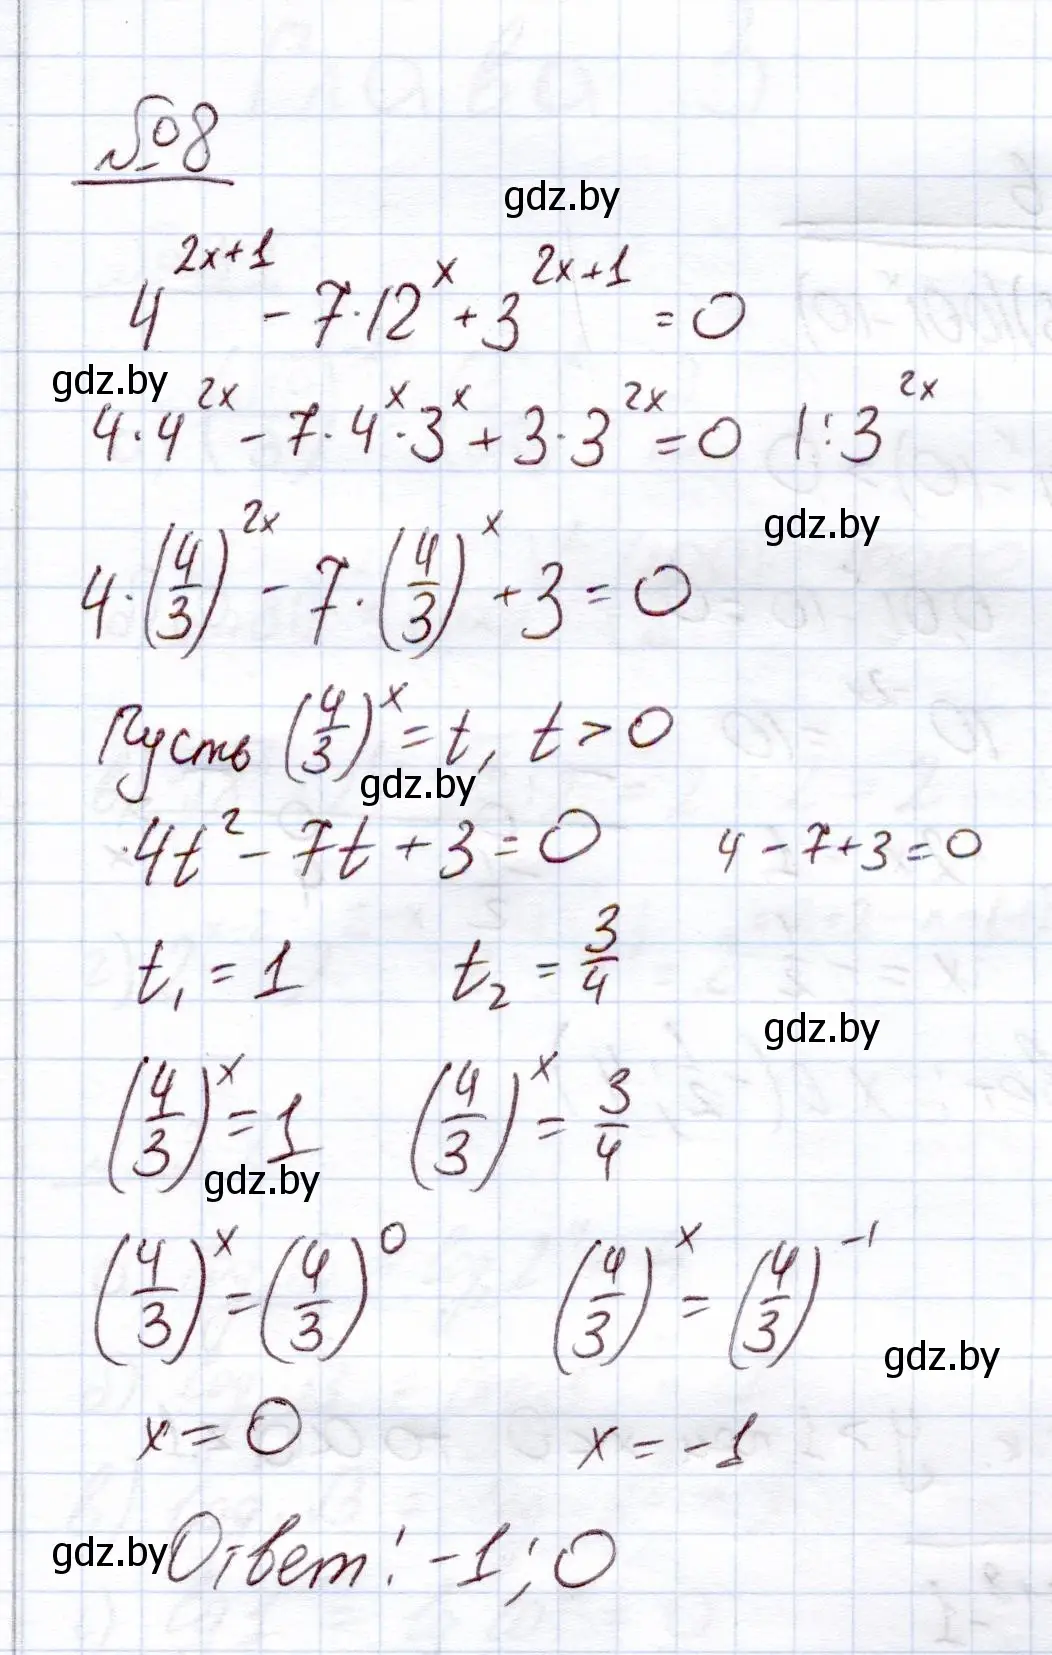 №8
gdz.by
4^(2x+1) - 7·12^x + 3^(2x+1) = 0
gdz.by
4·4^(2x) - 7·4^x·3^x + 3·3^(2x) = 0 |:3^(2x)
gdz.by
4·(4/3)^(2x) - 7·(4/3)^x + 3 = 0
Пусть (4/3)^x = t, t > 0
gdz.by
4t² - 7t + 3 = 0 4 - 7 + 3 = 0
t₁ = 1 t₂ = 3/4
gdz.by
(4/3)^x = 1 (4/3)^x = 3/4
gdz.by
(4/3)^x = (4/3)^0 (4/3)^x = (4/3)^(-1)
gdz.by
x = 0 x = -1
gdz.by Ответ: -1; 0